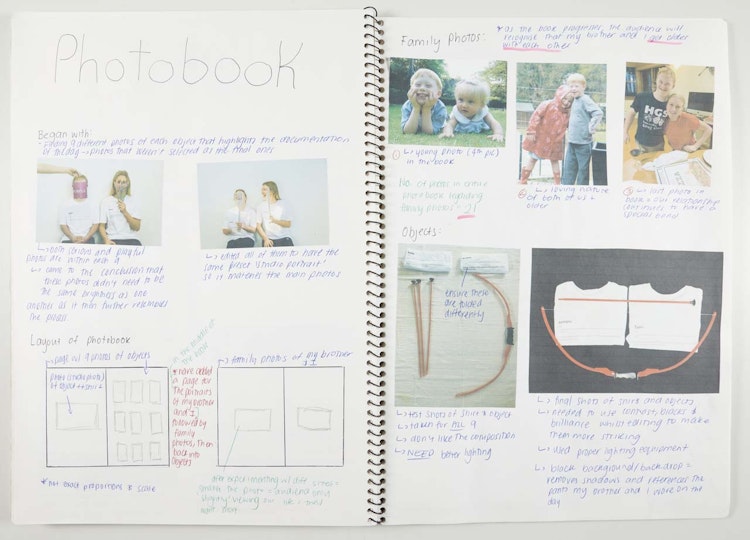 Photobook
Began with:
- finding 9 different photos of each object that highlights the documentation
of the day → photos that weren't selected as the final ones
↳ both serious and playful
photos are within each 9
↳ came to the conclusion that
these photos didn't need to be
the same brightness as one
another as it then further resembles
the
↳ edited all of them to have the
same preset 'studio portrait'
so it matches the main photos
Layout of photobook
↳ page w/ 9 photos of objects
of object + shirt
in the middle of
the book
* have added
a page for
the portraits
of my brother
and I,
followed by
family
photos, then
back into
objects
↳ family photos of my brother
+ I
* not exact proportions & scale
after experimenting w/ diff sizes =
Family Photos:
* as the book progresses, the audience will
recognise that my brother and I get older
with each other
① ↳ young photo
in the book
② ↳ loving nature
of both of us =
older
③ ↳ last photo in
book = our relationship
continues to have a
special bond
No. of photos in entire
photobook highlighting
family photos = 21
Objects:
ensure these
are folded
differently
HGS
↳ test shots of shirt & object
↳ taken for ALL 9
↳ don't like the composition
↳ NEED better lighting
↳ final shots of shirt and objects
↳ needed to use contrast, blacks &
brilliance whilst editing to make
them more striking
↳ used proper lighting equipment
↳ black background/backdrop =
removes shadows and references the
pants my brother and I wore on the
day